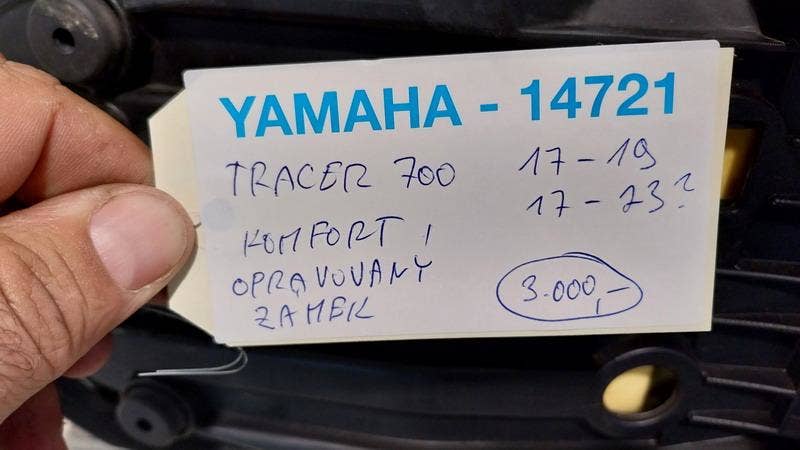 YAMAHA - 14721
TRACER 700
17-19
17-23?
KOMFORT I
OPRAVOVANY
ZAMEK
3.000,-